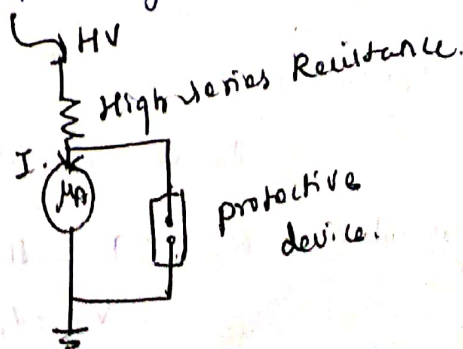 HV
High series Resistance.
I.
μA
protective
device.